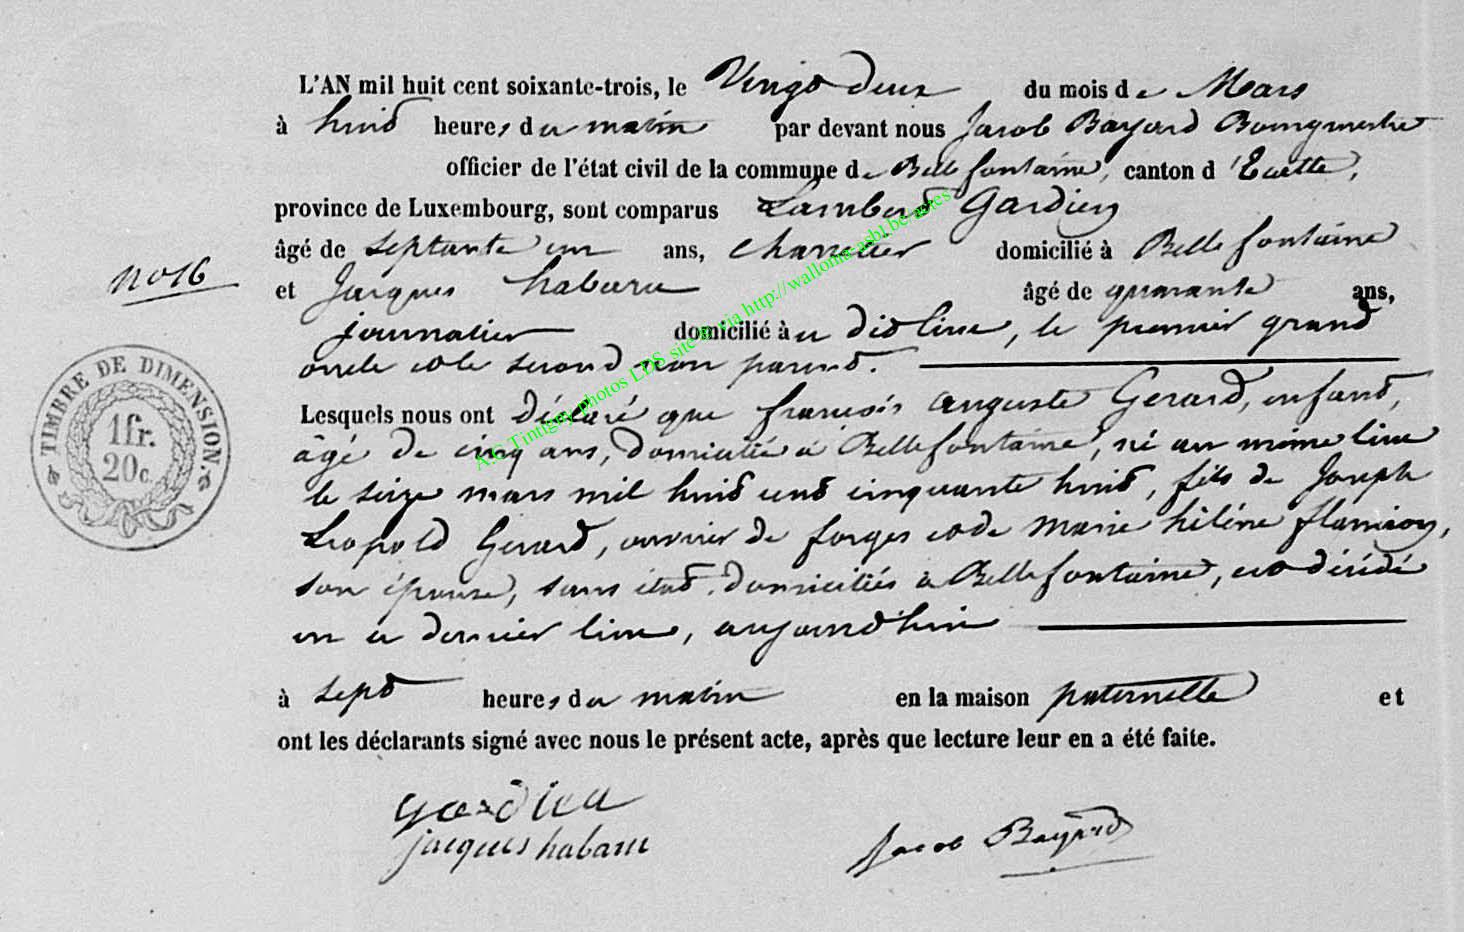 L'AN mil huit cent soixante-trois, le Vingt deux du mois de Mars
à huit heures du matin par devant nous Jacob Bayard Bourgmestre
officier de l'état civil de la commune de Bellefontaine, canton d'Etalle,
province de Luxembourg, sont comparus Lambert Gardien
âgé de septante un ans, charretier domicilié à Bellefontaine
N° 16
et Jacques habaru âgé de quarante ans,
journalier domicilié à u dit lieu, le premier grand
oncle et le second non parent.
Lesquels nous ont déclaré que françois auguste Gerard, enfant,
âgé de cinq ans, domicilié à Bellefontaine, né au même lieu
le seize mars mil huit cent cinquante huit, fils de Joseph
Léopold Gerard, ouvrier de forges et de Marie hélène flamion,
son épouse, sans état domiciliés à Bellefontaine, est décédé
en ce dernier lieu, aujourd'hui
à sept heures du matin en la maison paternelle et
ont les déclarants signé avec nous le présent acte, après que lecture leur en a été faite.
gardien
jacques habaru
Jacob Bayard
TIMBRE DE DIMENSION.
1 fr.
20 c.
A.G Tintigny photos LDS site © via http://wallonia-asbl.be-actes